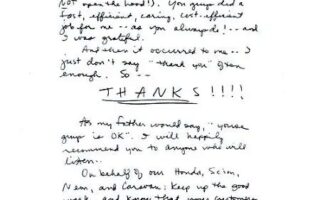 not open the hood!). You guys did a
fast, efficient, caring, cost-efficient
job for me -- as you always do! -- and
I was grateful.
And then it occurred to me -- I
just don't say "thank you" often
enough. So --
THANKS!!!!
As my father would say, "youse
guys is OK". I will happily
recommend you to anyone who will
listen..
On behalf of our Honda, Scion,
and Caravan: Keep up the good
work, and know that more customers